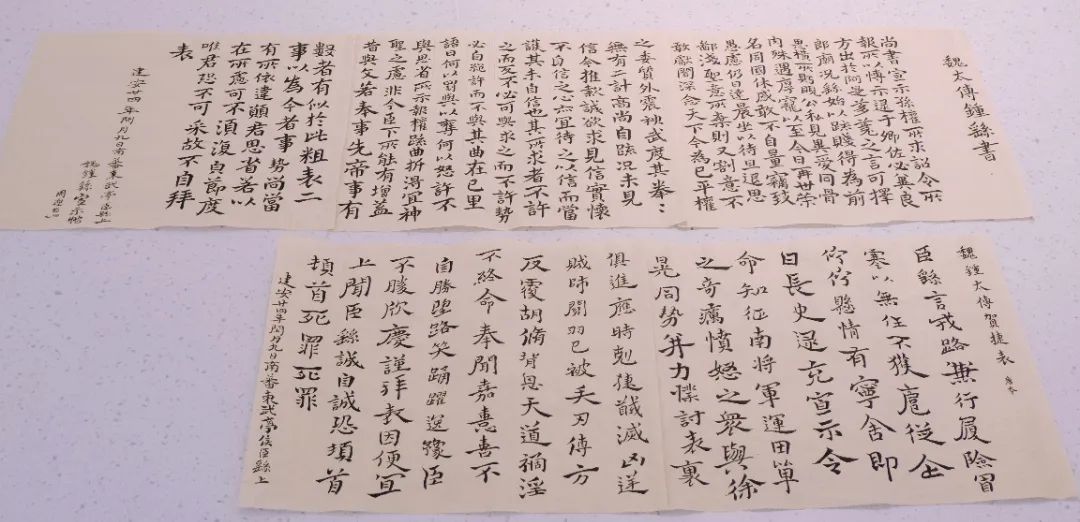 魏太傅鍾繇書
尚書宣示孫權所求詔令所
報所以博示逮于卿佐必冀良
方出於阿是芻蕘之言可擇
郎廟況繇始以疎賤得為前
恩橫所眄睨公私見異愛同骨
肉殊遇厚寵以至今日再世榮
名同國休慼敢不自量竊致
愚慮仍日達晨坐以待旦退思
鄙淺聖意所棄則又割意不
敢獻聞深念天下今為已平權
之委質外震神武度其拳:
無有二計高尚自疎況未見
信今推款誠欲求見信實懷
不自信之心宜待之以信而當
護其未自信也其所求者不許
之而反不必可與求之而不許勢
必自絕許而不與其曲在己里
語曰何以罰與以奪何以怒許不
與思省所示報權疎曲折得宜神
聖之慮非今臣下所能有增益
昔與文若奉事先帝事有
數者有似於此粗表二
事以為今者事勢尚當
有所依違願君思省若以
在所慮可不須復貞節度
唯君恐不可采故不自拜
表
建安廿四年閏月九日南蕃東武亭侯臣繇上
魏鍾繇宣示帖
魏鍾太傅賀捷表
臣繇言戎路兼行履險冒
寒以無任不獲扈從企
佇懸情有寧舍即
日長史逯充宣示令
命知征南將軍運田單
之奇厲憤怒之衆與徐
晃同勢并力撲討表裏
俱進應時剋捷馘滅凶逆
賊帥關羽已被矢刃傅方
反覆胡脩背恩天道禍淫
不終厥命奉聞嘉憙喜不
自勝望路笑踊躍逸豫臣
不勝欣慶謹拜表因便宜
上聞臣繇誠自誠恐頓首
頓首死罪死罪
建安廿四年閏月九日南蕃東武亭侯臣繇上